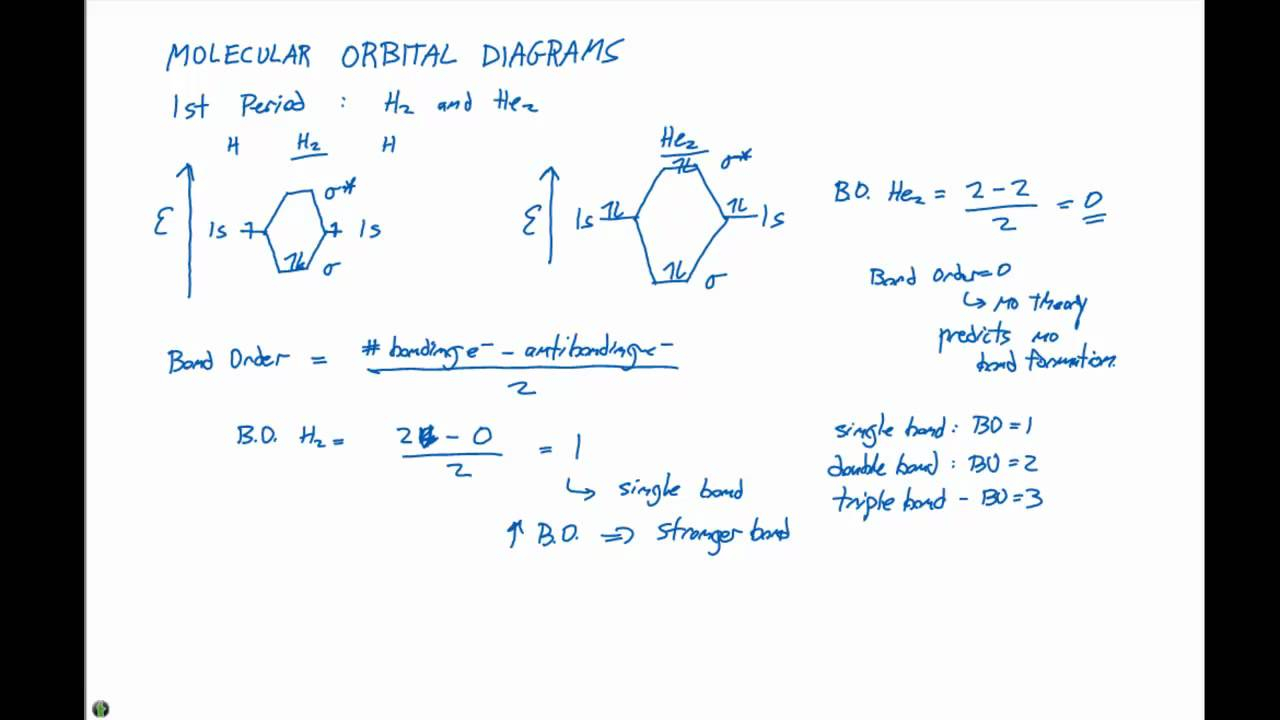 MOLECULAR ORBITAL DIAGRAMS
1st Period : H₂ and He₂
H H₂ H
σ*
ε 1s 1s
σ
He₂
σ*
ε 1s 1s
σ
B.O. He₂ = 2 - 2 / 2 = 0
Bond Order = 0
↳ MO theory
predicts no
bond formation.
Bond Order = # bonding e⁻ - antibonding e⁻ / 2
B.O. H₂ = 2 - 0 / 2 = 1
↳ single bond
↑ B.O. ⇒ stronger bond
single bond : BO = 1
double bond : BO = 2
triple bond - BO = 3